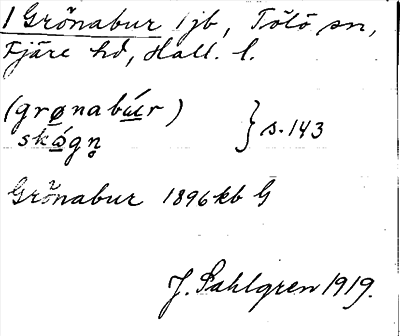 1 Grönabur 1 jb, Tölö sn,
Fjäre hd, Hall. l.
(grønabu̇́r)
skǫ́gn̥ } s. 143
Grönabur 1896 kb G
J. Sahlgren 1919.